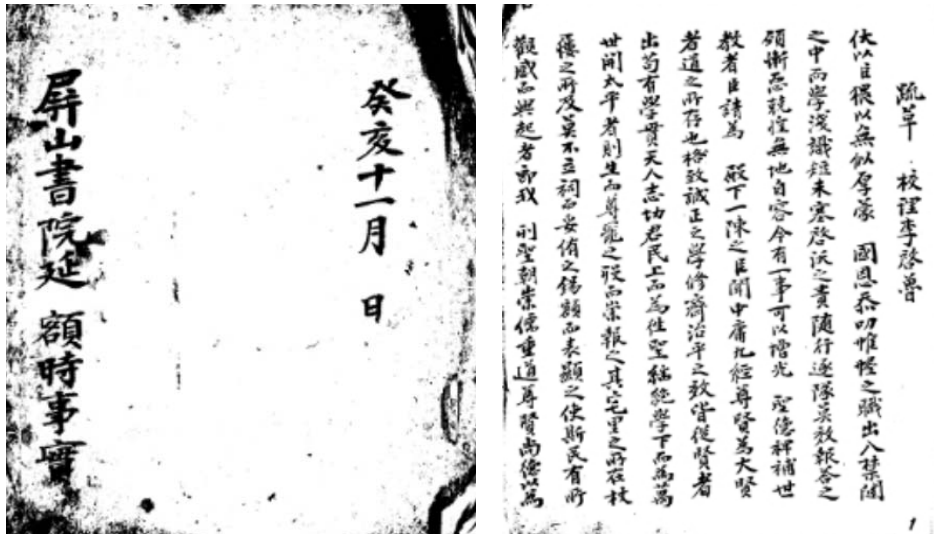 癸亥十一月 日
屛山書院延 額時事實
疏草 校理李啓
伏以臣猥以無似厚蒙 國恩忝叨帷幄之職出入禁闥
之中而學淺識短未塞啓沃之責隨行逐隊莫效報答之
須慚恧兢惶無地自容今有一事可以增光 聖德裨補世
教者臣請爲 殿下一陳之臣聞中庸九經尊賢爲大賢
者道之所存也格致誠正之學修齊治平之效皆從賢者
出苟有學貫天人志切君民上而爲往聖繼絶學下而爲萬
世開太平者則生而尊寵之歿而崇報之其宅里之所在杖
屨之所及莫不立祠而妥侑之錫額而表顯之使斯民有所
觀感而興起者卽我 列聖朝崇儒重道尊賢尚德以爲
1